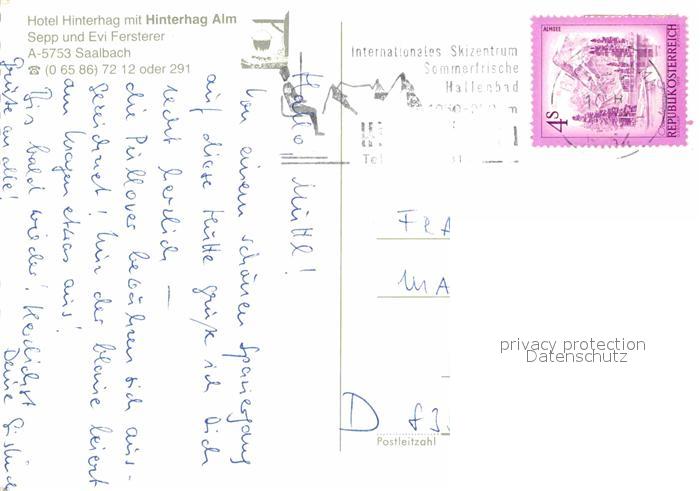 Hotel Hinterhag mit Hinterhag Alm
Sepp und Evi Fersterer
A-5753 Saalbach
☎ (0 65 86) 72 12 oder 291
Internationales Skizentrum
Sommerfrische
Hallenbad
ALMSEE
4S
REPUBLIK ÖSTERREICH
Hallo Mutti!
Von einem schönen Spaziergang
auf diese Hütte grüße ich Dich
recht herzlich —
die Pullover bewähren sich aus-
gezeichnet! Nur der blaue leiert
am Kragen etwas aus!
Bis bald wieder! Herzlichst
Deine
Grüße an alle!
FRA
MA
D 83
Postleitzahl
privacy protection
Datenschutz